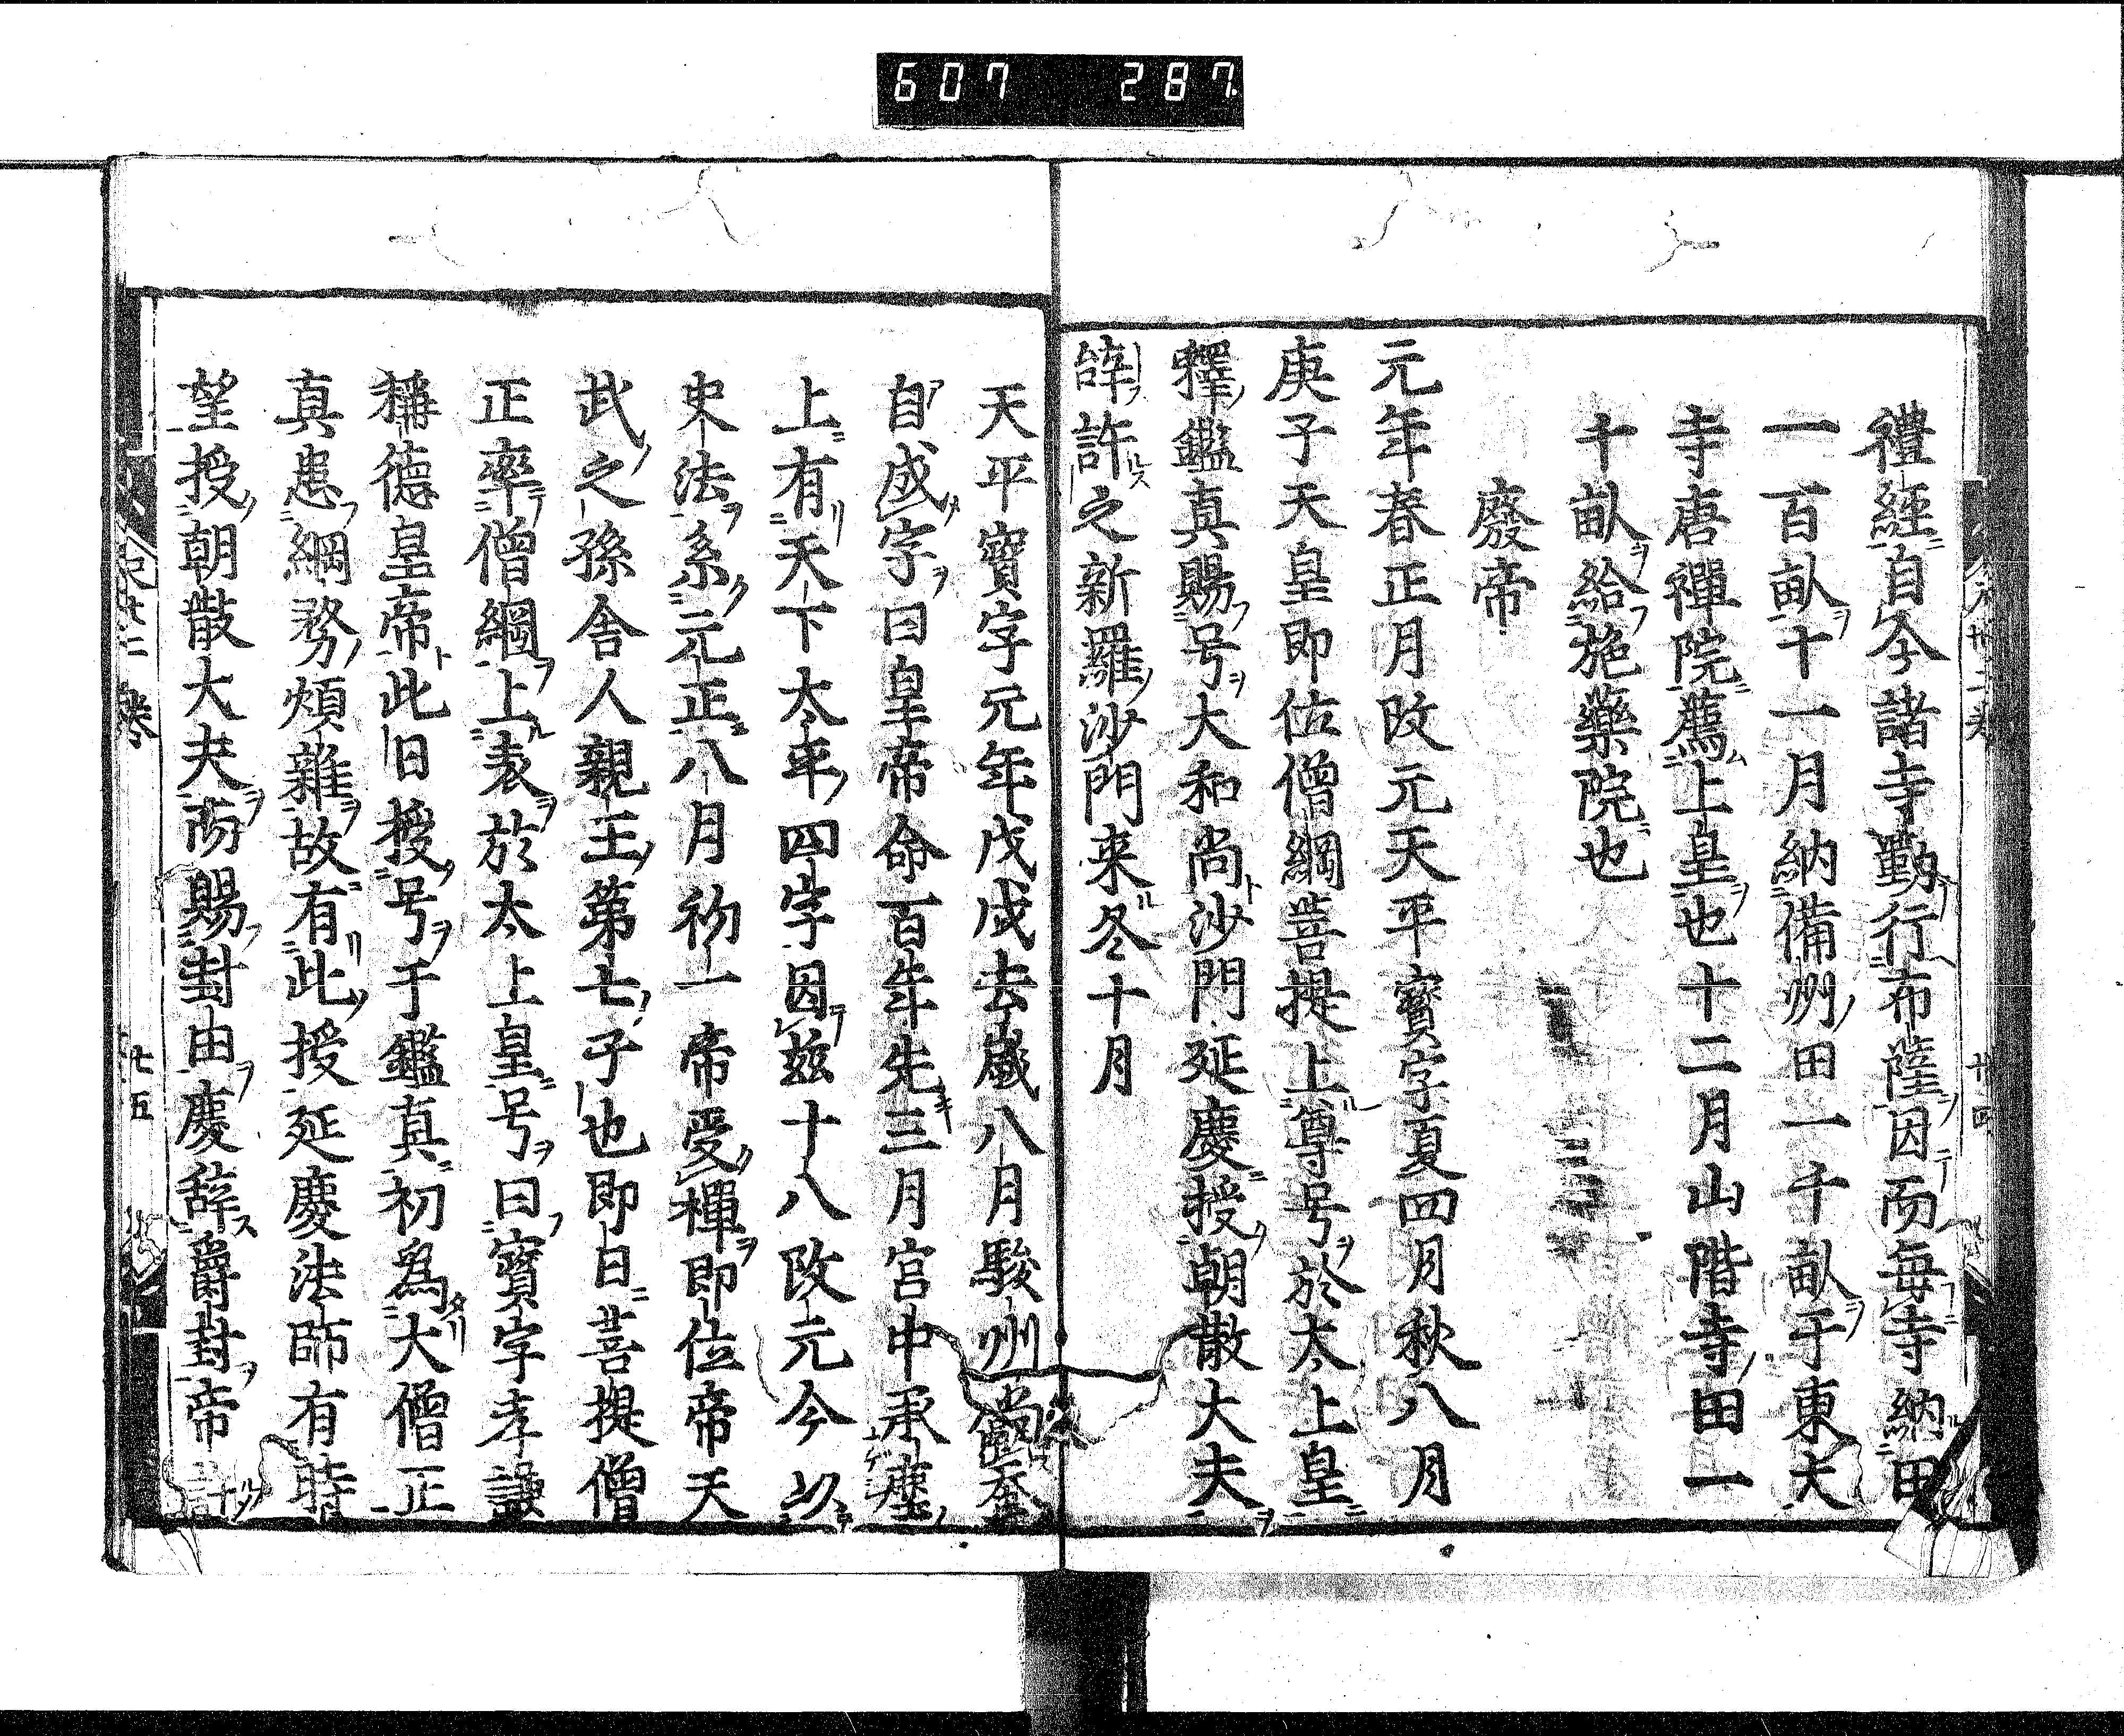 607 287
禮經自今諸寺勤行布薩因而每寺納田
一百畝十一月納備州田一千畝于東大
寺唐禪院薦上皇也十二月山階寺田一
十畝給施藥院也
廢帝
元年春正月改元天平寳字夏四月秋八月
庚子天皇即位僧綱菩提上尊号於太上皇
釋鑑真賜号大和尚沙門延慶授朝散大夫
辝許之新羅沙門来冬十月
天平寳字元年戊戌去歲八月駿州蚕
自成字曰皇帝命百年先三月宮中承塵
上有天下太平四字因玆十八改元今以
史法系元正八月初一帝受禪即位帝天
武之孫舎人親王第七子也即日菩提僧
正率僧綱上表於太上皇号曰寳字孝謙
稱德皇帝此旧授号于鑑真初爲大僧正
真患綱務煩雜故有此授延慶法師有時
望授朝散大夫而賜封由慶辞爵封帝
廿五